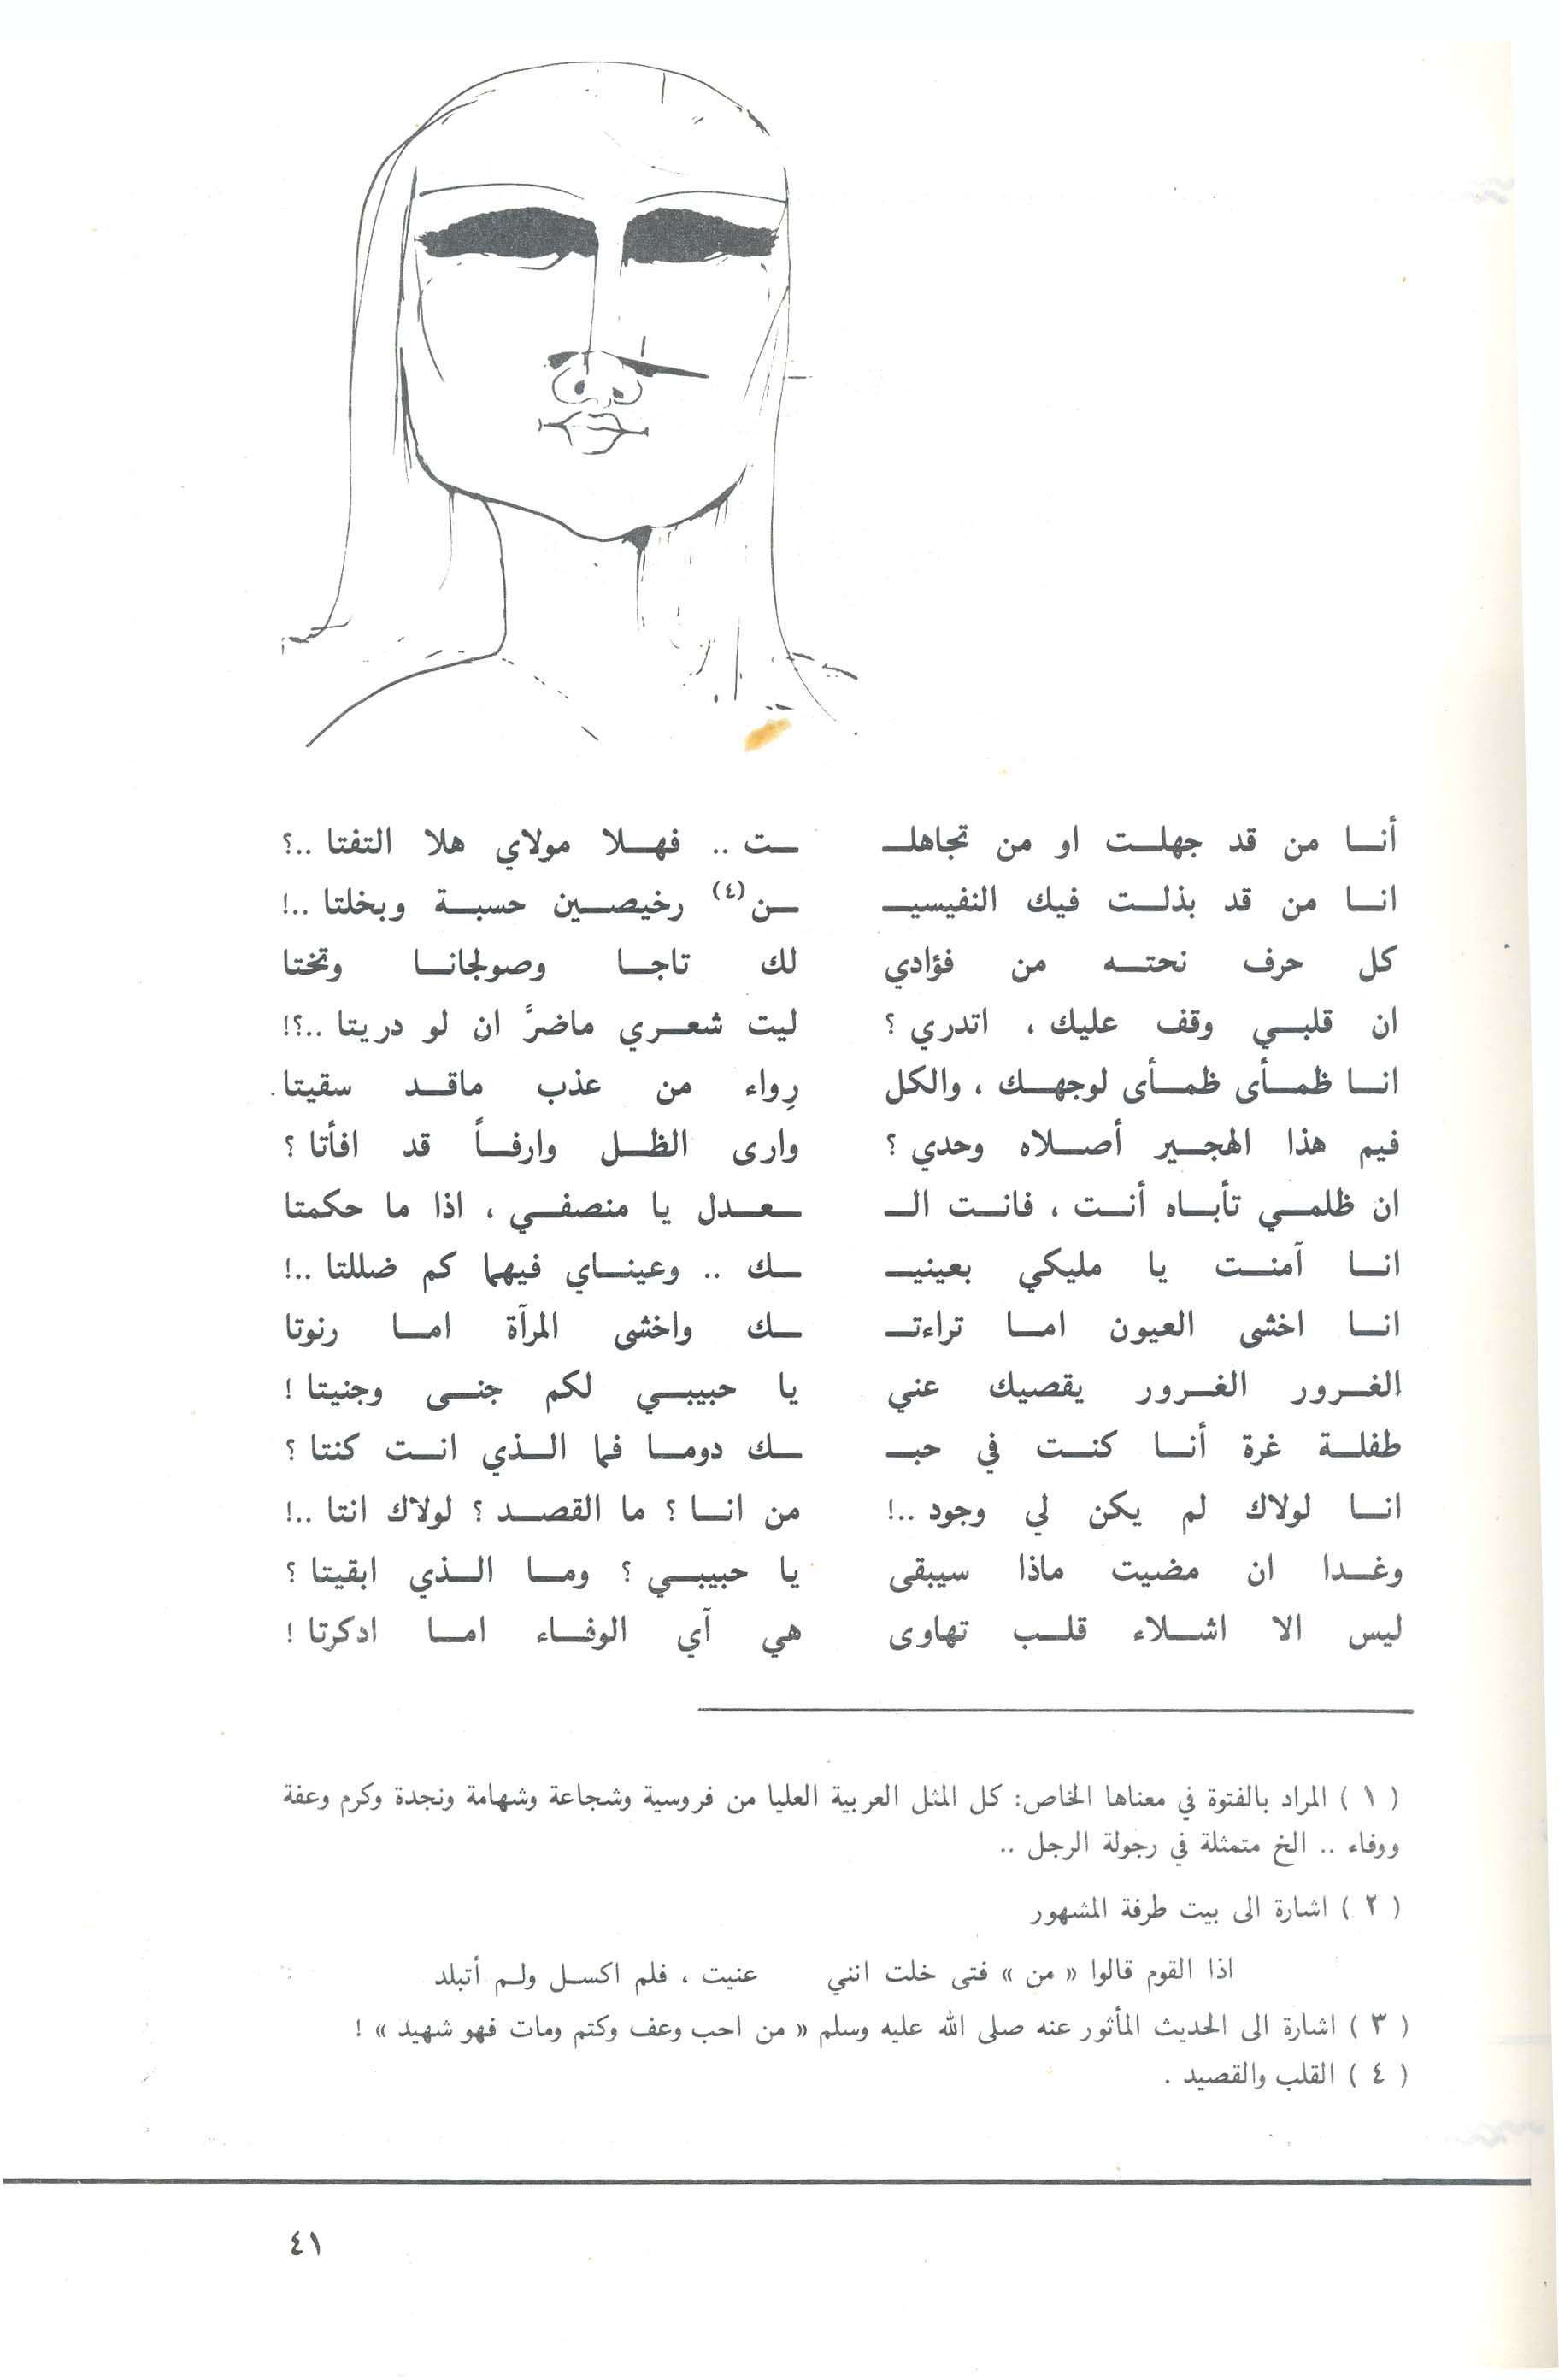 أنـــا من قد جهلـــت او من تجاهلـــ ـــت .. فهـــلا مولاي هلا التفتا ..؟
انـــا من قد بذلـــت فيك النفيسيـــ ـــن (٤) رخيصـــين حسبـــة وبخلتا ..!
كل حرف نحتـــه من فؤادي لك تاجـــا وصولجانـــا وتختا
ان قلبـــي وقف عليك ، اتدري ؟ ليت شعـــري ماضرًّ ان لو دريتا ..؟!
انـــا ظمـــأى ظمـــأى لوجهـــك ، والكل رِواء من عذب ماقـــد سقيتا .
فيم هذا الهجـــير أصـــلاه وحدي ؟ وارى الظـــل وارفـــاً قد افأتا ؟
ان ظلمـــي تأبـــاه أنـــت ، فانـــت الـــ ـــعـــدل يا منصفـــي ، اذا ما حكمتا
انـــا آمنـــت يا مليكي بعينيـــ ـــك .. وعينـــاي فيهما كم ضللتا ..!
انـــا اخشى العيون امـــا تراءتـــ ـــك واخشى المرآة امـــا رنوتا
الغـــرور الغـــرور يقصيك عني يا حبيبـــي لكم جنـــى وجنيتا !
طفلـــة غرة أنـــا كنـــت في حبـــ ـــك دومـــا فما الـــذي انـــت كنتا ؟
انـــا لولاك لم يكن لي وجود ..! من انـــا ؟ ما القصـــد ؟ لولاك انتا ..!
وغـــدا ان مضيت ماذا سيبقى يا حبيبـــي ؟ ومـــا الـــذي ابقيتا ؟
ليس الا اشـــلاء قلـــب تهاوى هي آي الوفـــاء امـــا ادكرتا !
( ١ ) المراد بالفتوة في معناها الخاص: كل المثل العربية العليا من فروسية وشجاعة وشهامة ونجدة وكرم وعفة
ووفاء .. الخ متمثلة في رجولة الرجل ..
( ٢ ) اشارة الى بيت طرفة المشهور
اذا القوم قالوا « من » فتى خلت انني عنيت ، فلم اكسـل ولـم أتبلد
( ٣ ) اشارة الى الحديث المأثور عنه صلى الله عليه وسلم « من احب وعف وكتم ومات فهو شهيد » !
( ٤ ) القلب والقصيد .
٤١